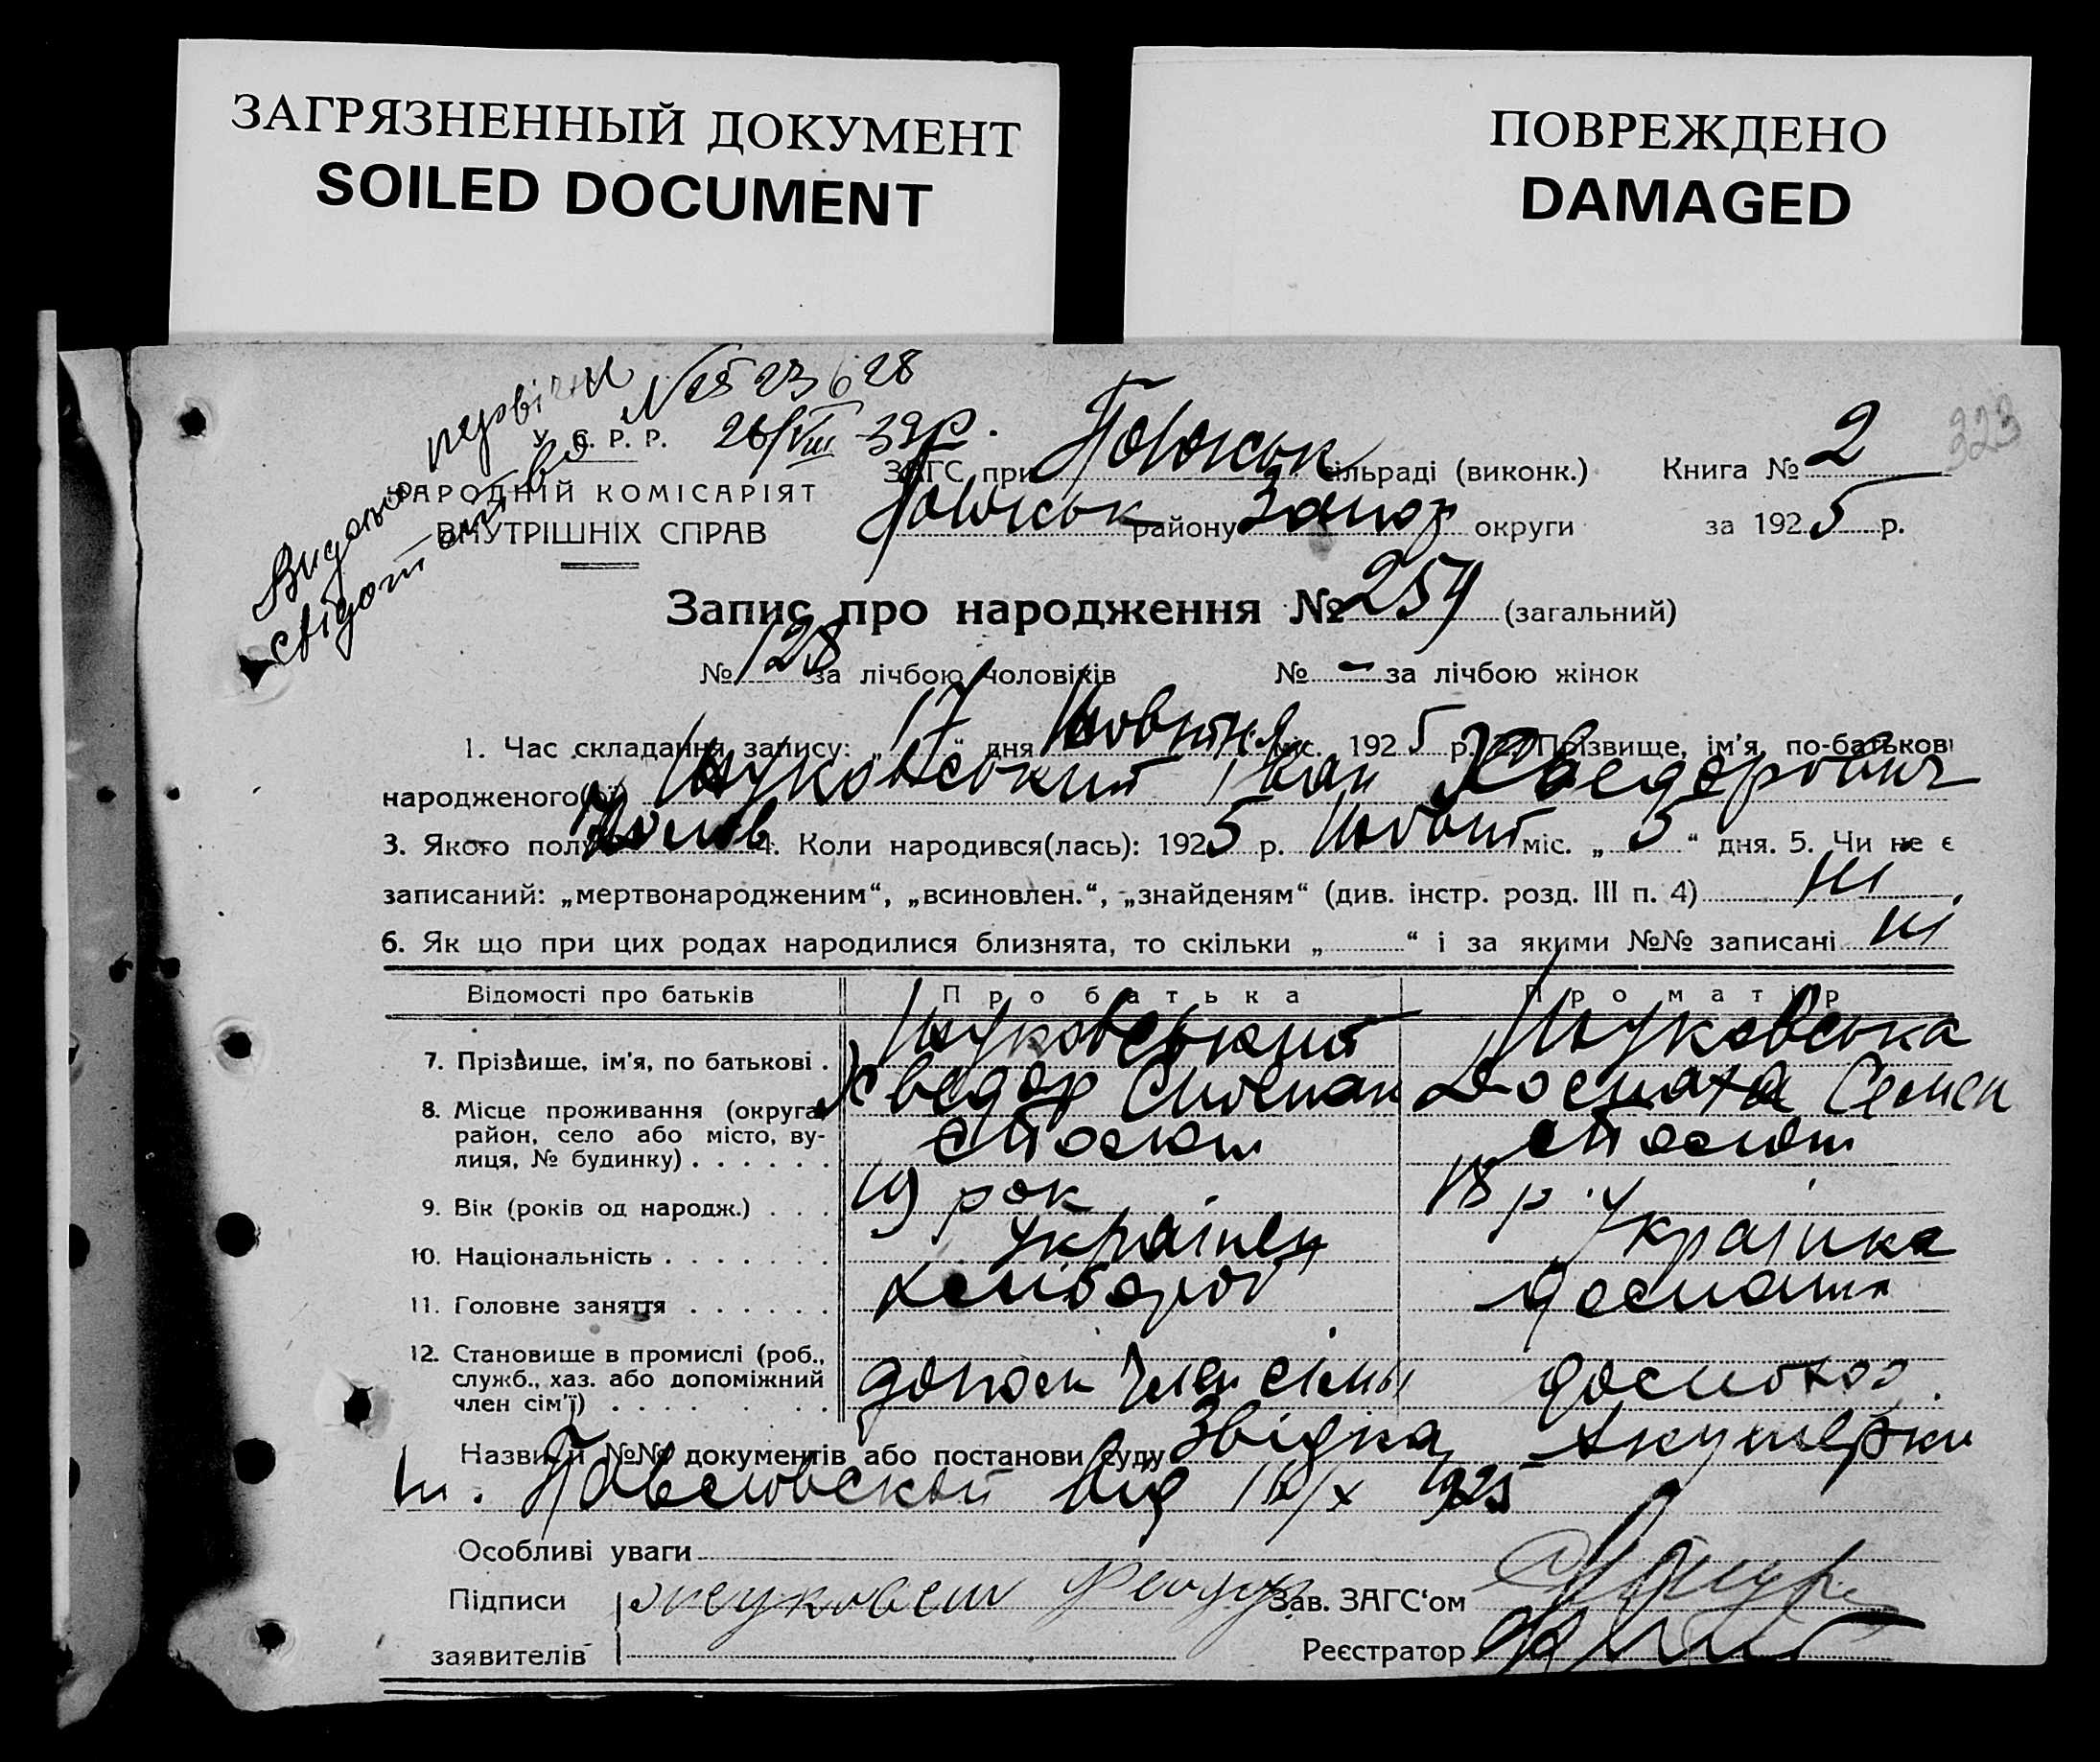 ЗАГРЯЗНЕННЫЙ ДОКУМЕНТ
SOILED DOCUMENT
ПОВРЕЖДЕНО
DAMAGED
323
Видано первічне
свідоцтво
26/VIII 32р.
У. С. Р. Р.
НАРОДНІЙ КОМІСАРІЯТ
ВНУТРІШНІХ СПРАВ
ЗАГС при сільраді (виконк.) Книга № 2
району Запор округи за 1925 р.
Запис про народження № 254 (загальний)
№ 128 за лічбою чоловіків № - за лічбою жінок
1. Час складання запису: „17“ дня Жовтня міс. 1925 р. 2. Прізвище, ім'я, по-батькові
народженого(ої) Жуковський Іван Хведорович
3. Якого полу Чолов 4. Коли народився(лась): 1925 р. Жовт міс. „5“ дня. 5. Чи не є
записаний: „мертвонародженим“, „всиновлен.“, „знайденям“ (див. інстр. розд. III п. 4) Ні
6. Як що при цих родах народилися близнята, то скільки „ “ і за якими №№ записані ні
Відомості про батьків Про батька Про матір
7. Прізвище, ім'я, по батькові . Жуковський Жуковська
Хведор Степан Семен
8. Місце проживання (округа,
район, село або місто, ву-
лиця, № будинку) . . . . . .
9. Вік (років од народж.) . . . 19 рок 18 р.
10. Національність . . . . . . . Українец Українка
11. Головне заняття . . . . . . хлібороб
12. Становище в промислі (роб.,
служб., хаз. або допоміжний
член сім'ї) . . . . . . . . допом член сімьі
Назви й №№ документів або постанови суду Звідка Акушерки
Павловской від 1925
Особливі уваги
Підписи Зав. ЗАГС'ом
заявителів Реєстратор